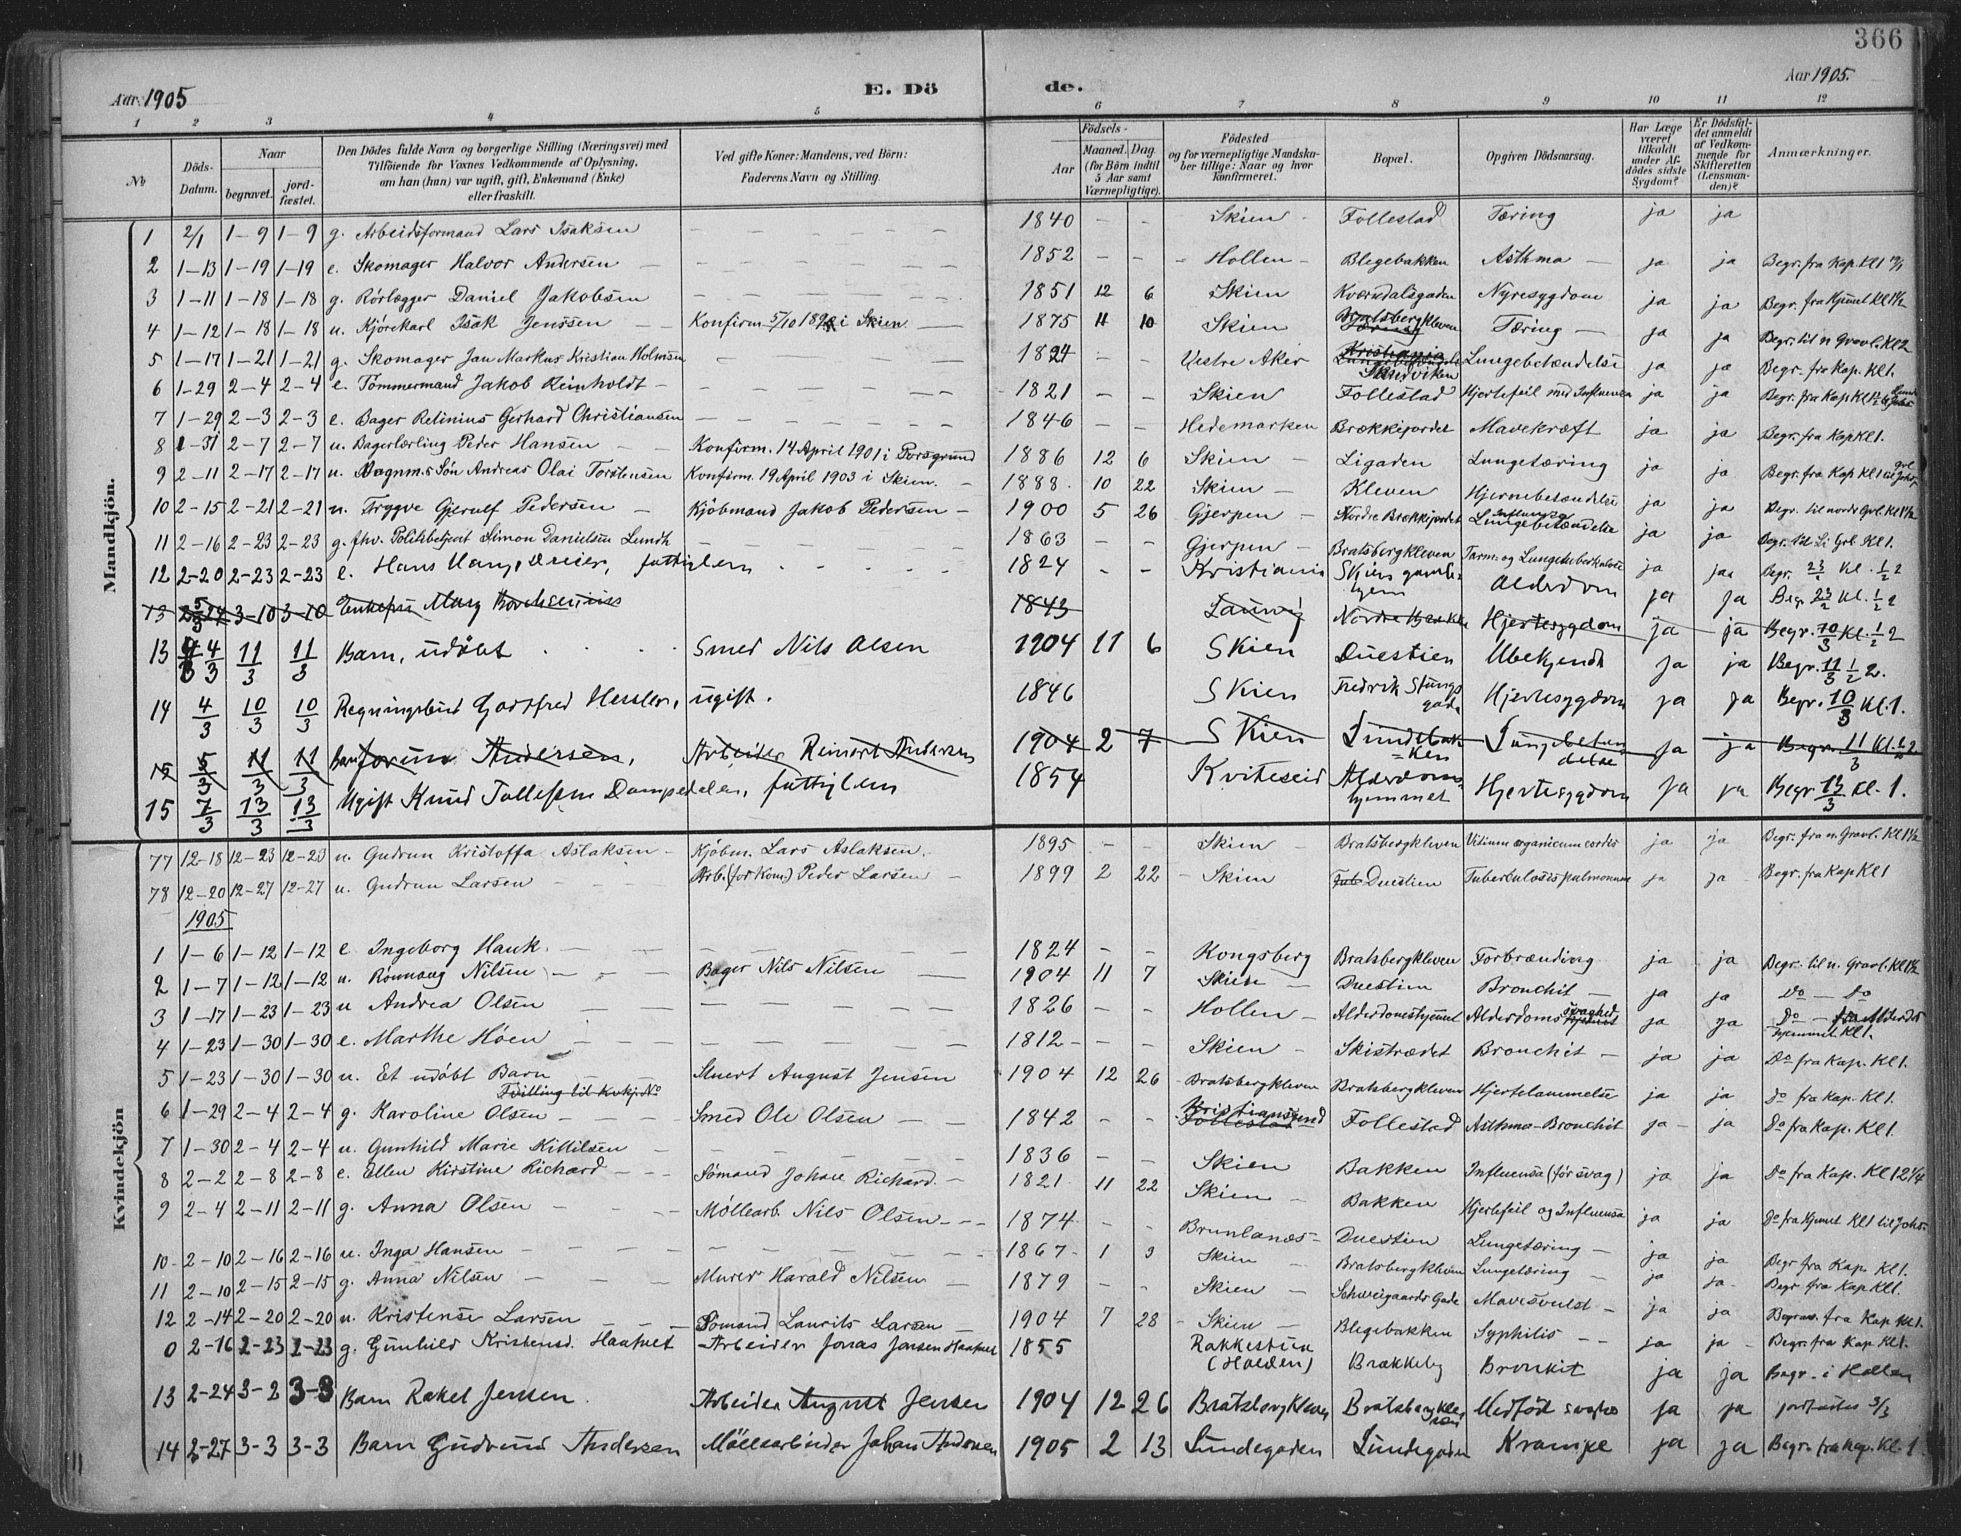 366
Aar 1905 E. Döde. Aar 1905.
1 2 3 4 5 6 7 8 9 10 11 12
No Döds-Datum. Naar begravet. jordfæstet. Den Dödes fulde Navn og borgerlige Stilling (Næringsvei) med Tilföiende for Voxnes Vedkommende af Oplysning, om han (hun) var ugift, gift, Enkemand (Enke) eller fraskilt. Ved gifte Koner: Mandens, ved Börn: Faderens Navn og Stilling. Födsels- Aar Maaned. Dag. (for Börn indtil 5 Aar samt Værnepligtige). Födested og for værnepligtige Mandskaber tillige: Naar og hvor konfirmeret. Bopæl. Opgiven Dödsaarsag. Har Læge været tilkaldt under Afdödes sidste Sygdom? Er Dödsfaldet anmeldt af Vedkommende for Skifteretten (Lensmanden)? Anmærkninger.
Mandkjön.
1 2/1 1-9 1-9 g. Arbeidsformand Lars Isaksen — 1840 — — Skien Follestad Tæring ja ja
2 1-13 1-19 1-19 e. Skomager Halvor Andersen — 1852 — — Hollen Blegebakken Asthma ja ja Begr. fra Kap. Kl 1
3 1-11 1-18 1-18 g. Rörlægger Daniel Jakobsen — 1851 12 6 Skien Kværndalsgaden Nyresygdom ja ja Begr. fra Hjemmet Kl 1½
4 1-12 1-18 1-18 u. Kjörekarl Isak Jenssen — Konfirm. 5/10 189 i Skien 1875 11 10 Skien Bratsbergkleven Tæring ja ja Begr. til n Gravl. Kl 2
5 1-17 1-21 1-21 g. Skomager Jan Markus Kristian Holmsen — 1824 — — Vestre Aker Lungebetændelse ja ja Begr. fra Kap. Kl 1.
6 1-29 2-4 2-4 e. Tömmermand Jakob Reinholdt — 1821 — — Skien Follestad Hjertefeil med Influensa ja ja Begr. fra Kap Kl 1½
7 1-29 2-3 2-3 e. Bager Retinius Gerhard Christiansen — 1846 — — Hedemarken Brækkejordet Mavekræft ja ja Begr. fra Kap Kl 1.
8 1-31 2-7 2-7 u. Bagerlærling Peder Hansen — Konfirm. 14 April 1901 i Porsgrund 1886 12 6 Skien Ligaden Lungetæring ja ja Begr. fra Kap. Kl 1
9 2-11 2-17 2-17 u. Vognm.s Sön Andreas Olai Torstensen Konfirm. 19 April 1903 i Skien. 1888 10 22 Skien Kleven Hjernebetændelse ja ja Begr. til nordr Gvl. Kl 1½
10 2-15 2-21 2-21 u. Tryggve Gjerulf Pedersen Kjöbmand Jakob Pedersen 1900 5 26 Gjerpen Nordre Brækkejordet Influenza Lungebetændelse ja ja Begr. til Li Grl. Kl 1.
11 2-16 2-23 2-23 g. fhv. Politibetjent Simon Danielsen Lundh — 1863 — — Gjerpen Bratsbergkleven Tarm- og Lungetuberkulose ja ja Begr. 23/2 Kl. ½ 2
12 2-20 2-23 2-23 e. Hans Hans. Dreier, fattiglem 1824 — — Kristiania Skiens gamlehjem Alderdom ja ja Begr 23/2 Kl. ½ 2
13 3-10 3-10 Enkefru Mary 1843 Laurvig Nordre Brækken Hjertesygdom ja ja Begr. 10/3 Kl. ½ 2
13 4/3 11/3 11/3 Barn, udöbt Smed Nils Olsen 1904 11 6 Skien Duestien Ubekjendt ja ja Begr. 11/3 ½ 2.
14 4/3 10/3 10/3 Regningsbud Gottfred Hessler, ugift. 1846 Skien Fredrik Stangs gade Hjertesygdom ja ja Begr. 10/3 Kl. 1.
15 5/3 11/3 11/3 Barn Jorun Andersen, Arbeider Reinert Andersen 1904 2 7 Skien Lundebakken Lungebetændelse ja ja Begr. 11/3 Kl. ½ 2
15 7/3 13/3 13/3 Ugift Knud Tollefsen Dampedalen, fattiglem 1854 Kviteseid Alderdomshjemmet Hjertesygdom ja ja Begr 13/3 Kl. 1.
Kvindekjön
77 12-18 12-23 12-23 u. Gudrun Kristoffa Aslaksen Kjöbm. Lars Aslaksen. 1895 — — Skien Bratsbergkleven Vitium organicum cordis ja ja Begr. fra n. Gravl. Kl 1½
78 12-20 12-27 12-27 u. Gudrun Larsen Arb. (for Kom.) Peder Larsen 1899 2 22 Skien Duestien Tuberkulosis pulmonum ja ja Begr. fra Kap Kl 1
1905
1 1-6 1-12 1-12 e. Ingeborg Hauk. — 1824 — — Kongsberg Bratsbergkleven Forbrænding ja ja Begr. til n. Gravl. Kl 1½
2 1-7 1-12 1-12 u. Rönnaug Nilsen Bager Nils Nilsen 1904 11 7 Skien Duestien Bronchit ja ja Do — Do
3 1-17 1-23 1-23 u Andrea Olsen — 1826 — — Hollen Alderdomshjemmet Alderdomssvaghed ja ja Do — fra Alderdomshjemmet Kl 1.
4 1-23 1-30 1-30 e. Marthe Höen — 1812 — — Skien Skistrædet Bronchit ja ja Do fra Kap. Kl 1.
5 1-23 1-30 1-30 u. Et udöbt Barn Tvilling til Kvkj. No Stuert August Jensen 1904 12 26 Bratsbergkleven Bratsbergkleven Hjertelammelse ja ja Do fra Kap. Kl 1.
6 1-29 2-4 2-4 g. Karoline Olsen Smed Ole Olsen 1842 — — Kristiansund Follestad Follestad Asthma-Bronchit ja ja Do fra Kap. Kl 1.
7 1-30 2-4 2-4 u. Gunhild Marie Kittilsen — 1836 — — Skien Bakken Influensa (för svag) ja ja Do fra Kap. Kl 12 1/4
8 2-2 2-8 2-8 e. Ellen Kirstine Richard Sömand Johan Richard 1821 11 22 Skien Bakken Hjertefeil og Influensa ja ja Do fra Hjemmet Kl 1 til Johs.
9 2-4 2-11 2-11 g. Anna Olsen Möllearb. Nils Olsen 1874 — — Brunlanæs Duestien Lungetæring ja ja Begr. fra Kap. Kl 1.
10 2-10 2-16 2-16 u. Inga Hansen — 1867 1 3 Skien Bratsbergkleven Lungetæring ja ja Begr. fra Kap Kl 1.
11 2-10 2-15 2-15 g. Anna Nilsen Murer Harald Nilsen 1879 — — Skien Schweigaards Gade Mavesvulst ja ja Begrav. fra Kap Kl 1
12 2-14 2-20 2-20 u. Kristense Larsen Sömand Laurits Larsen 1904 7 28 Skien Blegebakken Syphilis ja ja Begr. fra Kap. Kl 1.
0 2-16 2-23 2-23 g. Gunhild Kristensd. Haatvet Arbeider Jonas Jonsen Haatvet 1855 Rakkestuen (Holden) Brækkeby Bronkit ja ja Begr. i Hollen
13 2-24 3-2 3-3 Barn Rakel Jensen. Arbeider August Jensen 1904 12 26 Bratsbergkleven Bratsbergkleven Medfödt svaghed ja ja jordfæstes 3/3
14 2-27 3-3 3-3 Barn Gudrund Andersen Möllearbeider Johan Andersen 1905 2 13 Lundegaden Lundegaden Krampe ja ja Begr. fra Kap. Kl. 1